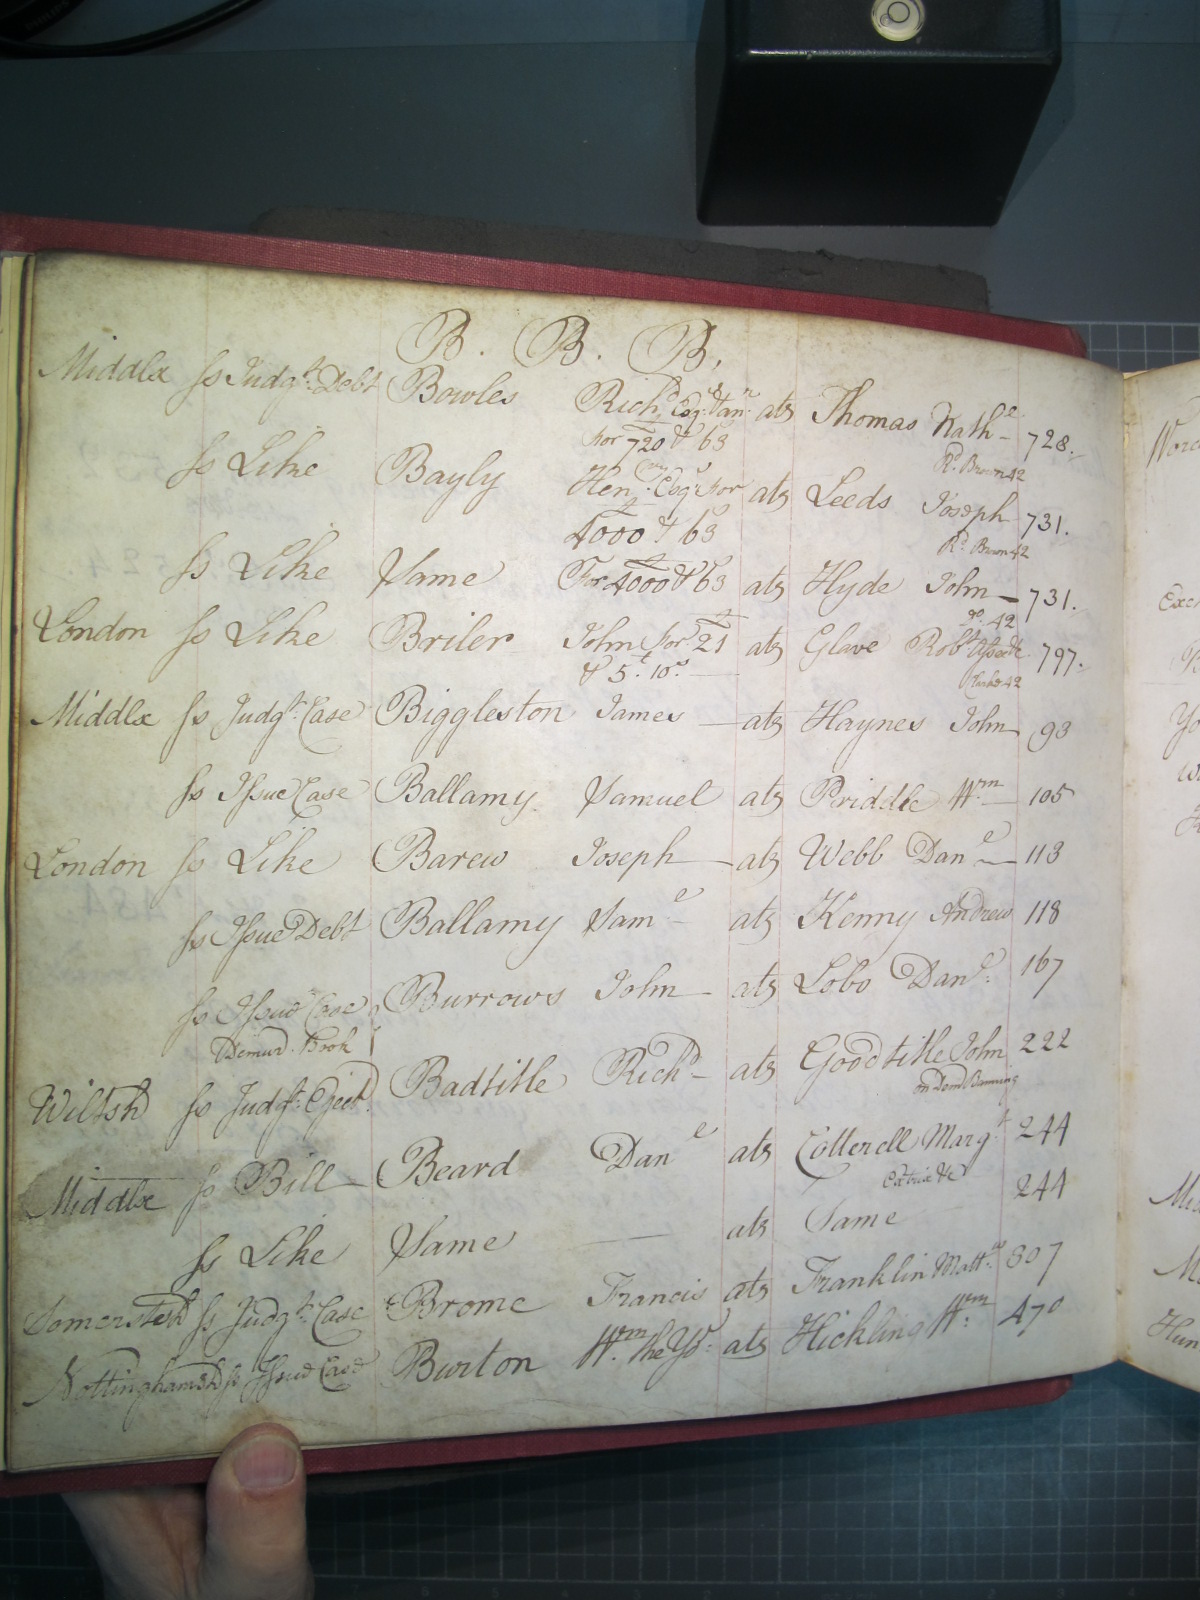 B. B. B.
Middlx ss Judgt. Debt Bowles Richd. Esqr. & an. ats Thomas Nathl. 728.
for 720 & 63 Rd. Brown 42
ss Like Bayly Heny. Esqr. for ats Leeds Joseph 731.
4000 & 63 Rd. Brown 42
ss Like Same For 4000 & 63 ats Hyde John 731.
do. 42
London ss Like Briler John for 21 ats Glave Robt. 797.
& 5£. 10s.
Middlx ss Judgt. Case Biggleston James ats Haynes John 93
ss Issue Case Ballamy Samuel ats Priddle Wm 105
London ss Like Barew Joseph ats Webb Danl 113
ss Issue Debt Ballamy Saml ats Kenny Andrew 118
ss Issue Case Burrows John ats Lobo Danl. 167
Demurr. Book
Wiltsh ss Judgt. Eject. Badtitle Richd ats Goodtitle John 222
on Dem Banning
Middlx ss Bill Beard Danl ats Cotterell Margt 244
Extrix &c
ss Like Same ats Same 244
Somersetsh ss Judgt. Case Brome Francis ats Franklin Mattw. 307
Nottinghamsh ss Issue Case Burton Wm. the Yr. ats Hickling Wm. 470